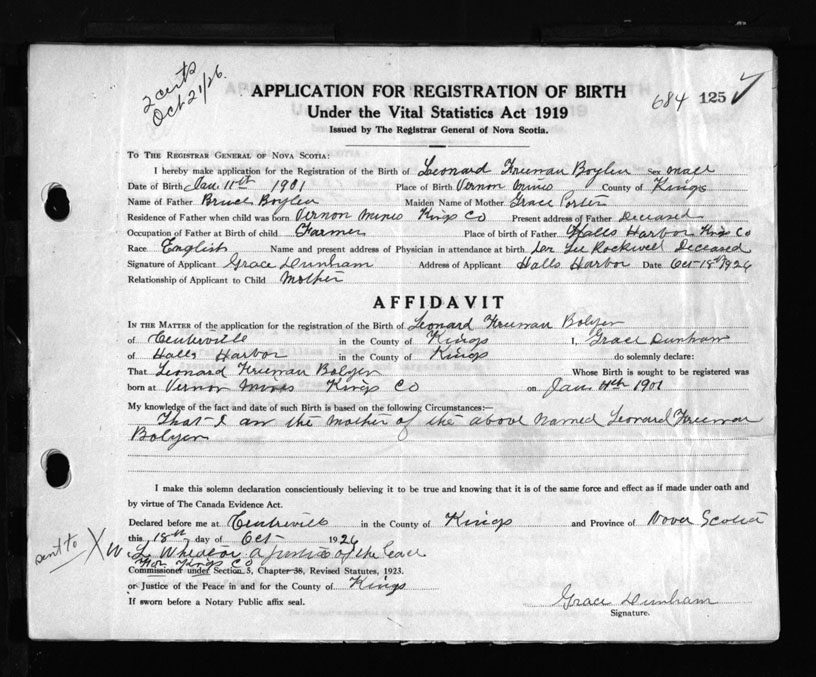 2 certs
Oct 21/26.
APPLICATION FOR REGISTRATION OF BIRTH
684 125
Under the Vital Statistics Act 1919
Issued by The Registrar General of Nova Scotia.
To The Registrar General of Nova Scotia:
I hereby make application for the Registration of the Birth of Leonard Freeman Boylen Sex Male
Date of Birth Jan. 11th 1901 Place of Birth Vernon Mines County of Kings
Name of Father Bruce Boylen Maiden Name of Mother Grace Porter
Residence of Father when child was born Vernon Mines Kings Co Present address of Father Deceased
Occupation of Father at Birth of child Farmer Place of birth of Father Halls Harbor Kings Co
Race English Name and present address of Physician in attendance at birth Lee Rockwell Deceased
Signature of Applicant Grace Dunham Address of Applicant Halls Harbor Date Oct 18th 1926
Relationship of Applicant to Child Mother
AFFIDAVIT
In the Matter of the application for the registration of the Birth of Leonard Freeman Bolyen
of Centreville in the County of Kings I, Grace Dunham
of Halls Harbor in the County of Kings do solemnly declare:
That Leonard Freeman Bolyen Whose Birth is sought to be registered was
born at Vernon Mines Kings Co on Jan 11th 1901
My knowledge of the fact and date of such Birth is based on the following Circumstances:—
That I am the mother of the above named Leonard Freeman
Bolyen
I make this solemn declaration conscientiously believing it to be true and knowing that it is of the same force and effect as if made under oath and
by virtue of The Canada Evidence Act.
Declared before me at Centreville in the County of Kings and Province of Nova Scotia
this 18th day of Oct 1926
sent to X W L a Justice of the Peace
For Kings Co
Commissioner under Section 5, Chapter 38, Revised Statutes, 1923.
or Justice of the Peace in and for the County of Kings
If sworn before a Notary Public affix seal.
Grace Dunham
Signature.